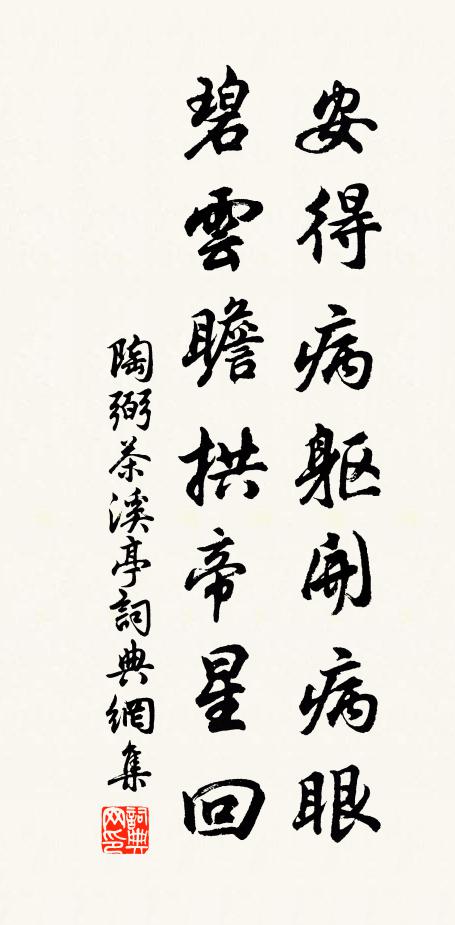 安得病軀開病眼
碧雲瞻拱帝星回
陶弼茶溪亭詞典網集
詞典网印